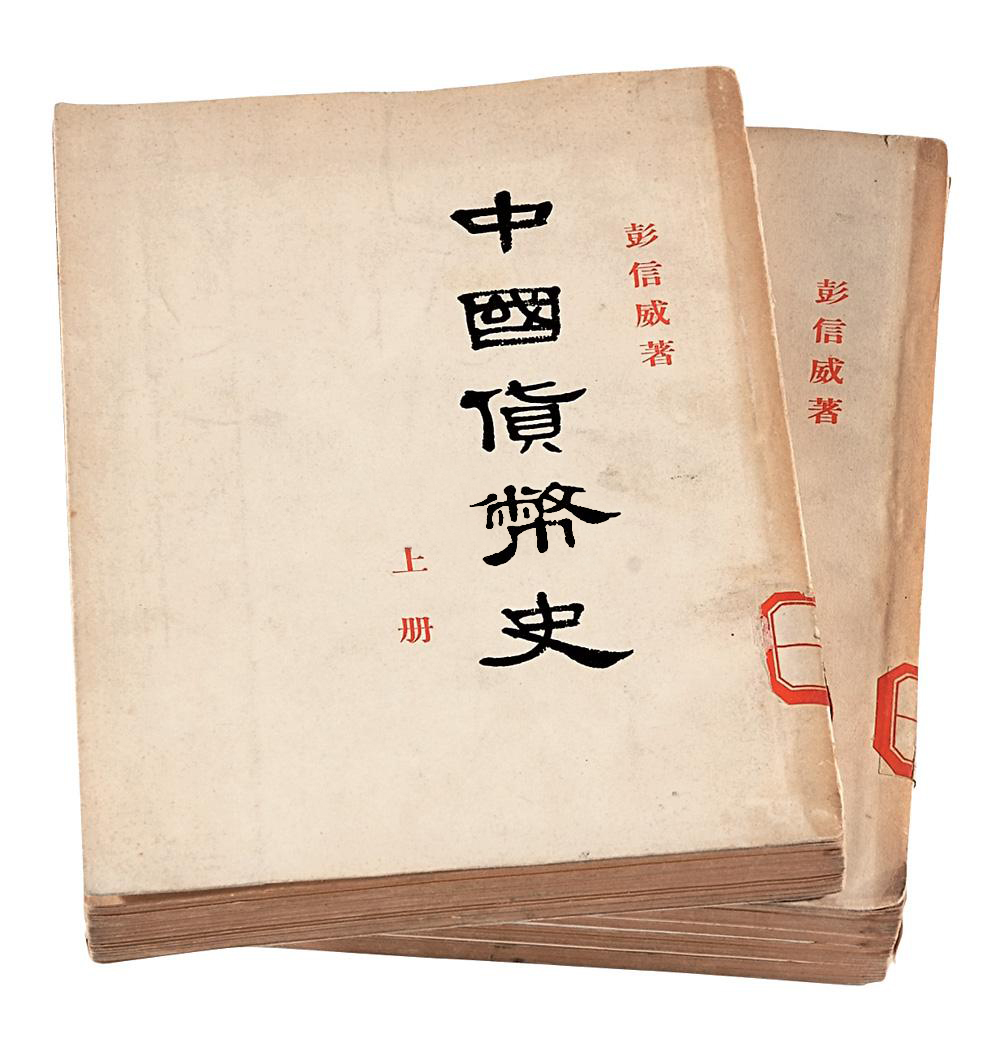 彭信威著
中國貨幣史
上册
彭信威著